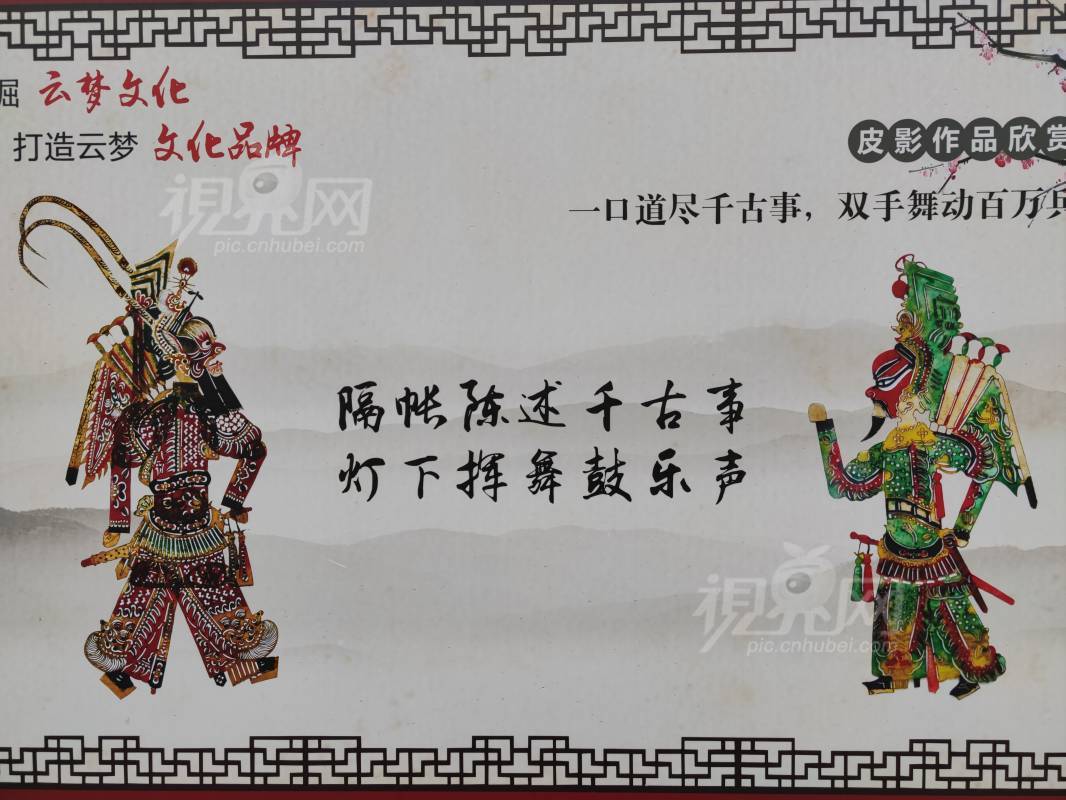 掘 云梦文化
打造云梦 文化品牌
皮影作品欣赏
一口道尽千古事，双手舞动百万兵
隔帐陈述千古事
灯下挥舞鼓乐声
視界网
pic.cnhubei.com
視界网
pic.cnhubei.com